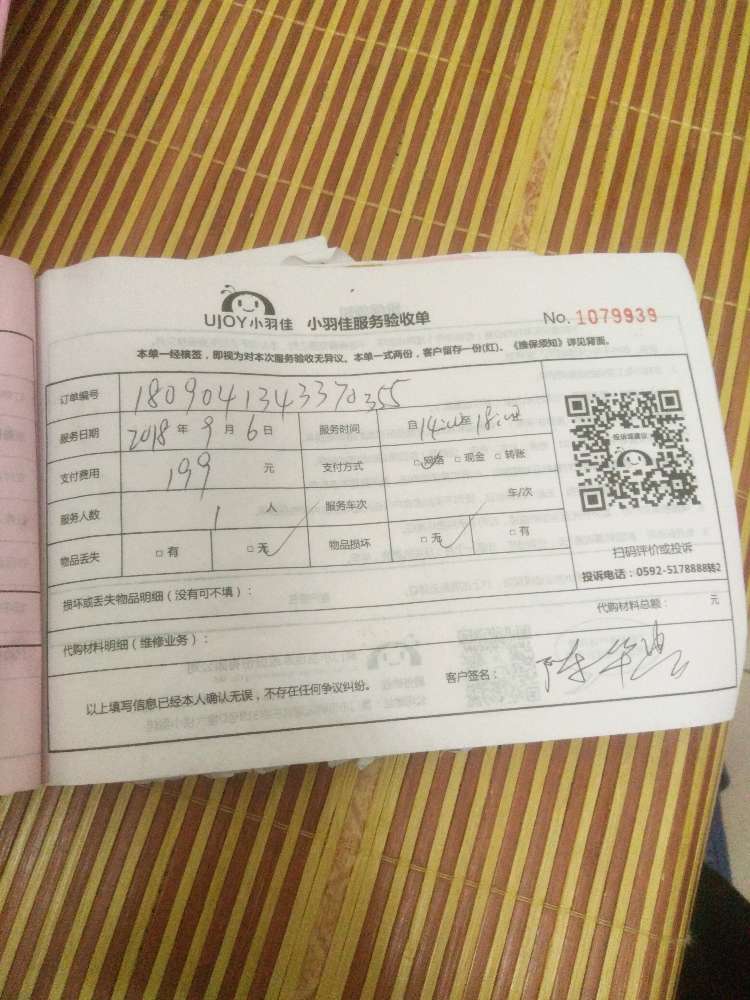 UJOY小羽佳 小羽佳服务验收单 No. 1079939
本单一经核签，即视为对本次服务验收无异议。本单一式两份，客户留存一份(红)。《维保须知》详见背面。
订单编号 1809041343370355
服务日期 2018 年 9 月 6 日 服务时间 自 14:00 至 18:00
支付费用 199 元 支付方式 □网络 □现金 □转账
服务人数 1 人 服务车次 车/次
物品丢失 □有 □无 物品损坏 □无 □有
投诉或建议
扫码评价或投诉
投诉电话：0592-5178888转2
损坏或丢失物品明细（没有可不填）：
代购材料明细（维修业务）： 代购材料总额： 元
以上填写信息已经本人确认无误，不存在任何争议纠纷。 客户签名：